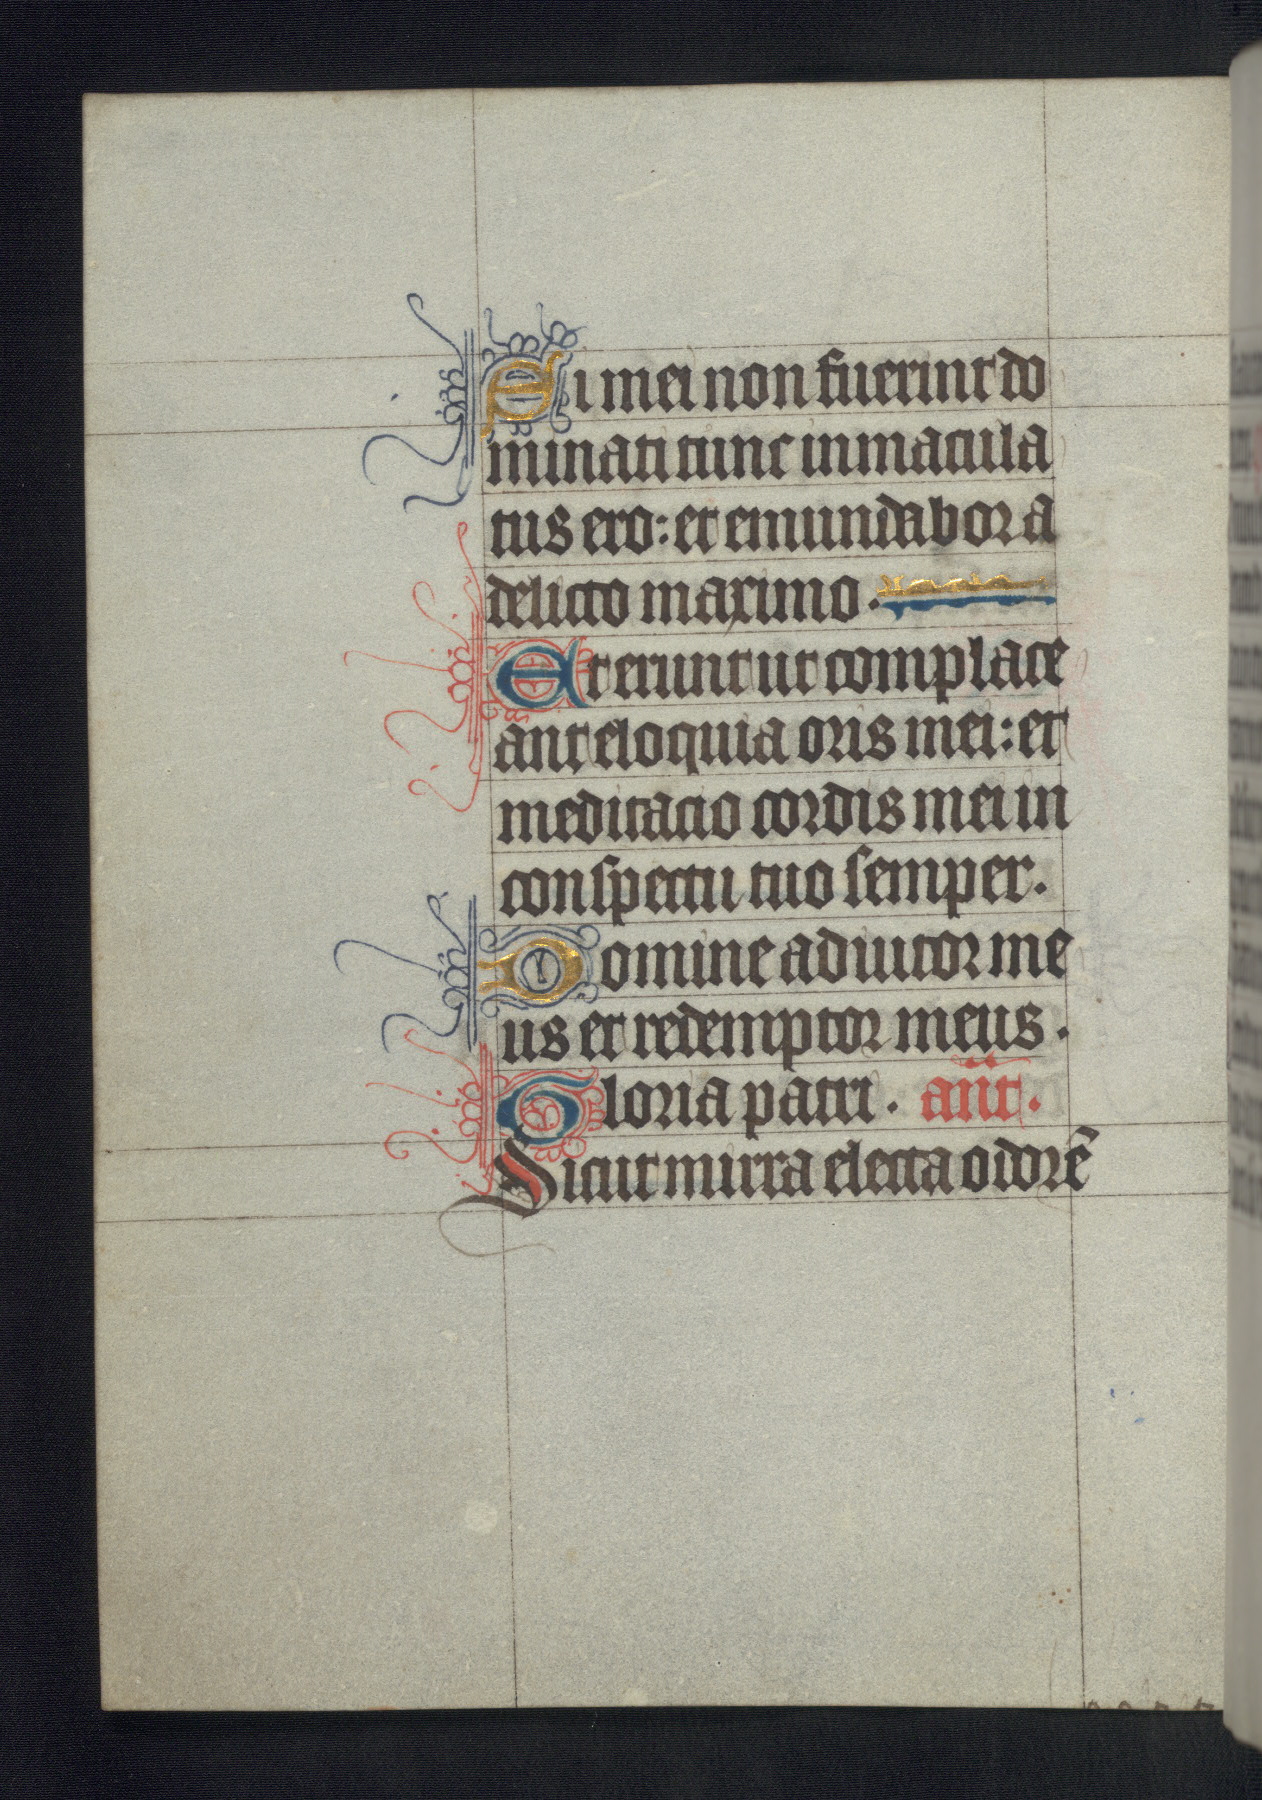 Si mei non fuerint do
minati tunc inmacula
tus ero: et emundabor a
delicto maximo.
Et erunt ut complace
ant eloquia oris mei: et
meditacio cordis mei in
conspectu tuo semper.
Domine adiutor me
us et redemptor meus.
Gloria patri. an̄t.
Sicut mirra electa odorē